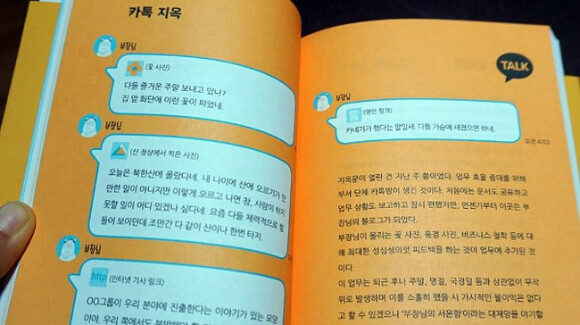 카톡 지옥
부장님
(꽃 사진)
다들 즐거운 주말 보내고 있나?
집 앞 화단에 이런 꽃이 피었네.
부장님
(산 정상에서 찍은 사진)
오늘은 북한산에 올랐다네. 내 나이에 산에 오르기가
만한 일이 아니지만 이렇게 오르고 나면 참, 사람이 하지
못할 일이 어디 있겠나 싶다네. 요즘 다들 체력적으로 힘
들어 보이던데 조만간 다 같이 산이나 한번 타지.
부장님
http (인터넷 기사 링크)
OO그룹이 우리 분야에 진출한다는 이야기가 있는 모양
TALK
부장님
(명언 링크)
카네기가 했다는 말일세. 다들 가슴에 새겼으면 하네.
오전 4:03
지옥문이 열린 건 지난 주 쯤이었다. 업무 효율 증대를 위해
부서 단체 카톡방이 생긴 것이다. 처음에는 문서도 공유하고
업무 상황도 보고하고 잠시 편했지만, 언젠가부터 이곳은 부
장님의 블로그가 되었다.
부장님이 올리는 꽃 사진, 풍경 사진, 비즈니스 철학 등에 대
해 최대한 성심성의껏 피드백을 하는 것이 업무에 추가된 것
이다.
이 업무는 퇴근 후나 주말, 명절, 국경일 등과 상관없이 무작
위로 발생하며 이를 소홀히 했을 시 가시적인 불이익은 없다
고 할 수 있겠으나 '부장님의 서운함'이라는 대재앙을 야기할